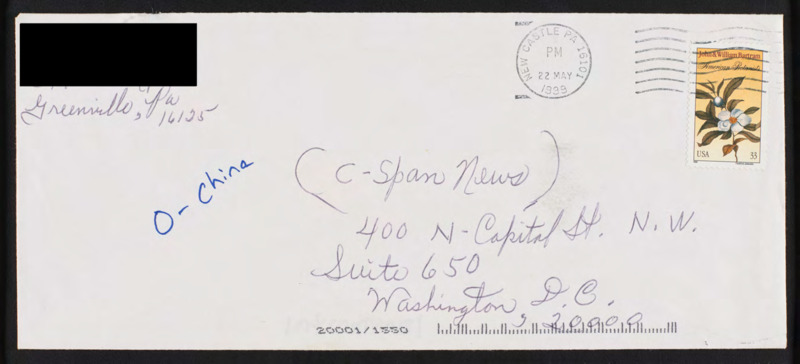 Greenville, Pa
, 16125
NEW CASTLE PA 16101
PM
22 MAY
1999
John & William Bartram
American Botanists
USA 33
O- China
(C-Span News)
400 N-Capital St. N.W.
Suite 650
Washington D.C.
, 20000
20001/1550